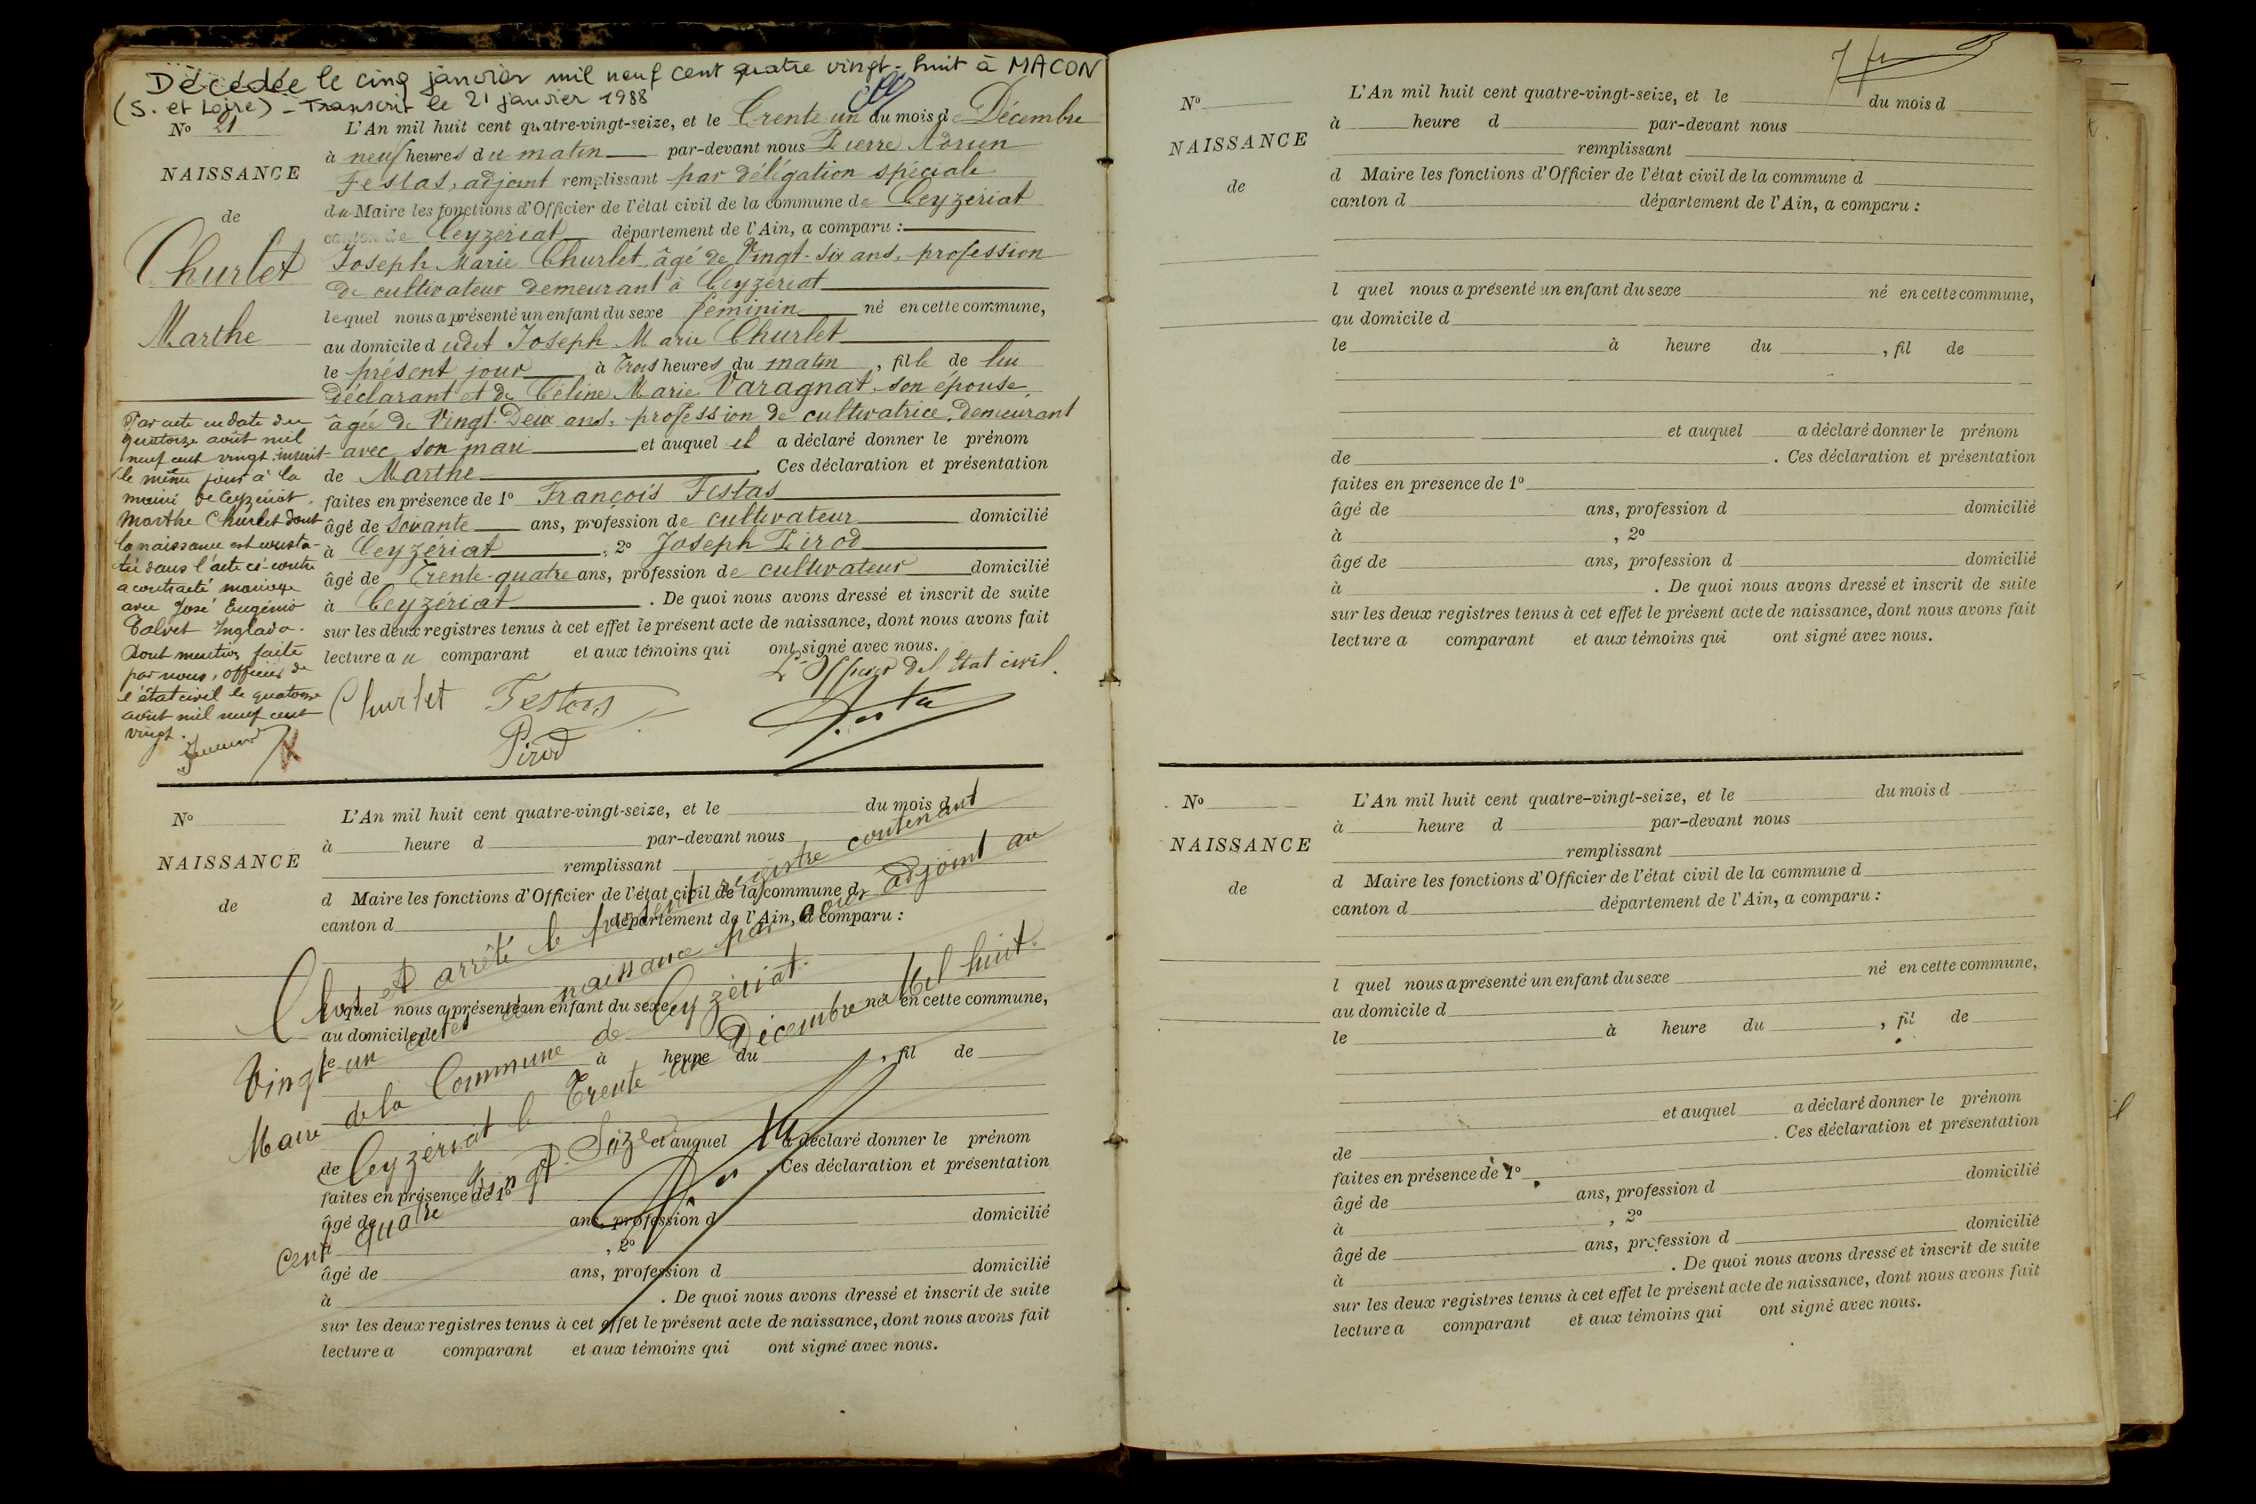 Décédée le cinq janvier mil neuf cent quatre vingt-huit à MACON
(S. et Loire) - Transcrit le 21 janvier 1988
No 21
NAISSANCE
de
Churlet
Marthe
L'An mil huit cent quatre-vingt-seize, et le Trente un du mois de Décembre
à neuf heures du matin par-devant nous Pierre
Festas, adjoint remplissant par délégation spéciale
du Maire les fonctions d'Officier de l'état civil de la commune de Ceyzériat
canton de Ceyzériat département de l'Ain, a comparu :
Joseph Marie Churlet âgé de Vingt-six ans, profession
de cultivateur demeurant à Ceyzériat
lequel nous a présenté un enfant du sexe féminin né en cette commune,
au domicile dudit Joseph Marie Churlet
le présent jour à Trois heures du matin, fille de lui
déclarant et de Céline Marie Varagnat son épouse,
âgée de Vingt-Deux ans, profession de cultivatrice, demeurant
avec son mari et auquel il a déclaré donner le prénom
de Marthe. Ces déclaration et présentation
faites en présence de 1o François Festas
âgé de Soixante ans, profession de cultivateur domicilié
à Ceyzériat, 2o Joseph Pirod
âgé de Trente-quatre ans, profession de cultivateur domicilié
à Ceyzériat. De quoi nous avons dressé et inscrit de suite
sur les deux registres tenus à cet effet le présent acte de naissance, dont nous avons fait
lecture au comparant et aux témoins qui ont signé avec nous.
L'Officier de l'Etat civil.
Churlet Festas
Pirod
Par acte en date du
quatorze août mil
neuf cent vingt inscrit
le même jour à la
mairie de Ceyzériat,
Marthe Churlet dont
la naissance est consta-
tée dans l'acte ci-contre
a contracté mariage
avec José Eugénio
Calvet Inglada.
Dont mention faite
par nous, officier de
l'état civil le quatorze
août mil neuf cent
vingt.
No
NAISSANCE
de
L'An mil huit cent quatre-vingt-seize, et le du mois d
à heure d par-devant nous
remplissant
d Maire les fonctions d'Officier de l'état civil de la commune d
canton d département de l'Ain, a comparu :
l quel nous a présenté un enfant du sexe né en cette commune,
au domicile d
le à heure du , fil de
et auquel a déclaré donner le prénom
de . Ces déclaration et présentation
faites en présence de 1o
âgé de ans, profession d domicilié
à , 2o
âgé de ans, profession d domicilié
à . De quoi nous avons dressé et inscrit de suite
sur les deux registres tenus à cet effet le présent acte de naissance, dont nous avons fait
lecture a comparant et aux témoins qui ont signé avec nous.
Clos et arrêté le présent registre contenant
Vingt-un actes de naissance par nous adjoint au
Maire de la Commune de Ceyzériat.
Ceyzériat le Trente-un Décembre Mil huit
Cent quatre Vingt-Seize
No
NAISSANCE
de
L'An mil huit cent quatre-vingt-seize, et le du mois d
à heure d par-devant nous
remplissant
d Maire les fonctions d'Officier de l'état civil de la commune d
canton d département de l'Ain, a comparu :
l quel nous a présenté un enfant du sexe né en cette commune,
au domicile d
le à heure du , fil de
et auquel a déclaré donner le prénom
de . Ces déclaration et présentation
faites en presence de 1o
âgé de ans, profession d domicilié
à , 2o
âgé de ans, profession d domicilié
à . De quoi nous avons dressé et inscrit de suite
sur les deux registres tenus à cet effet le présent acte de naissance, dont nous avons fait
lecture a comparant et aux témoins qui ont signé avec nous.
No
NAISSANCE
de
L'An mil huit cent quatre-vingt-seize, et le du mois d
à heure d par-devant nous
remplissant
d Maire les fonctions d'Officier de l'état civil de la commune d
canton d département de l'Ain, a comparu :
l quel nous a présenté un enfant du sexe né en cette commune,
au domicile d
le à heure du , fil de
et auquel a déclaré donner le prénom
de . Ces déclaration et présentation
faites en présence de 1o
âgé de ans, profession d domicilié
à , 2o
âgé de ans, profession d domicilié
à . De quoi nous avons dressé et inscrit de suite
sur les deux registres tenus à cet effet le présent acte de naissance, dont nous avons fait
lecture a comparant et aux témoins qui ont signé avec nous.